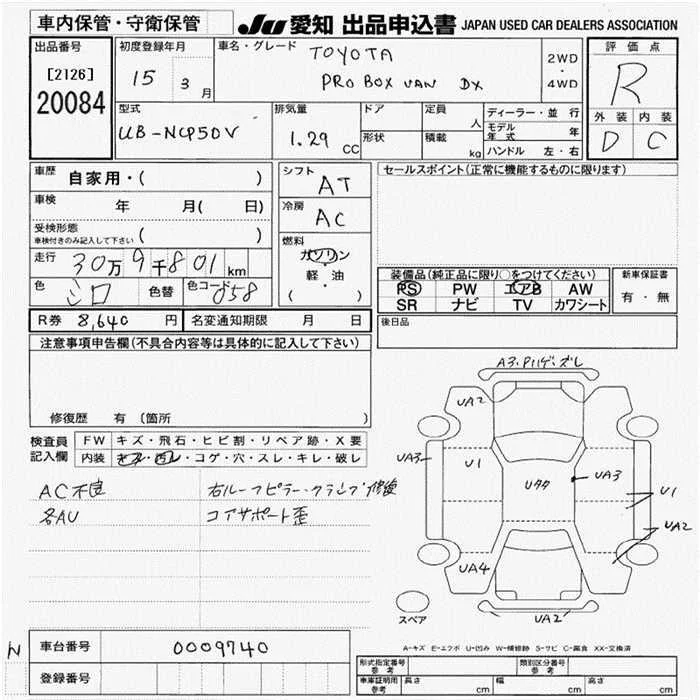 車内保管・守衛保管
JU 愛知 出品申込書 JAPAN USED CAR DEALERS ASSOCIATION
出品番号
[2126]
20084
初度登録年月
15 3 月
車名・グレード
TOYOTA
PROBOX VAN DX
2WD
・
4WD
評価点
R
外装 内装
D C
型式
UB-NCP50V
排気量
1.29 CC
ドア
形状
定員 人
積載 kg
ディーラー・並行
モデル年式 年
ハンドル 左・右
車歴 自家用・( )
車検 年 月( 日)
受検形態
車検付きのみ記入して下さい ( )
走行 30万9千801 km
色 シロ 色替 色コード 058
シフト AT
冷房 AC
燃料
ガソリン
軽・油
( )
セールスポイント(正常に機能するものに限ります)
装備品(純正品に限り○をつけてください)
PS PW エアB AW
SR ナビ TV カワシート
新車保証書
有・無
R券 8,640 円 名変通知期限 月 日
後日品
注意事項申告欄(不具合内容等は具体的に記入して下さい)
修復歴 有 (箇所 )
検査員記入欄
FW キズ・飛石・ヒビ割・リペア跡・X要
内装 キズ・凹レ・コゲ・穴・スレ・キレ・破レ
AC不良
各AU
右ルーフピラー・クランプ修復
コアサポート歪
A3・Pハゲ・ズレ
UA2
UA3
U1
Uタタ
UA3
U1
UA2
UA4
UA2
スペア
A-キズ E-エクボ U-凹み W-補修跡 S-サビ C-腐食 XX-交換済
N
車台番号 0009740
登録番号
形式指定番号 参考
類別区分番号 参考
車庫証明用 参考 長さ cm 幅 cm 高さ cm